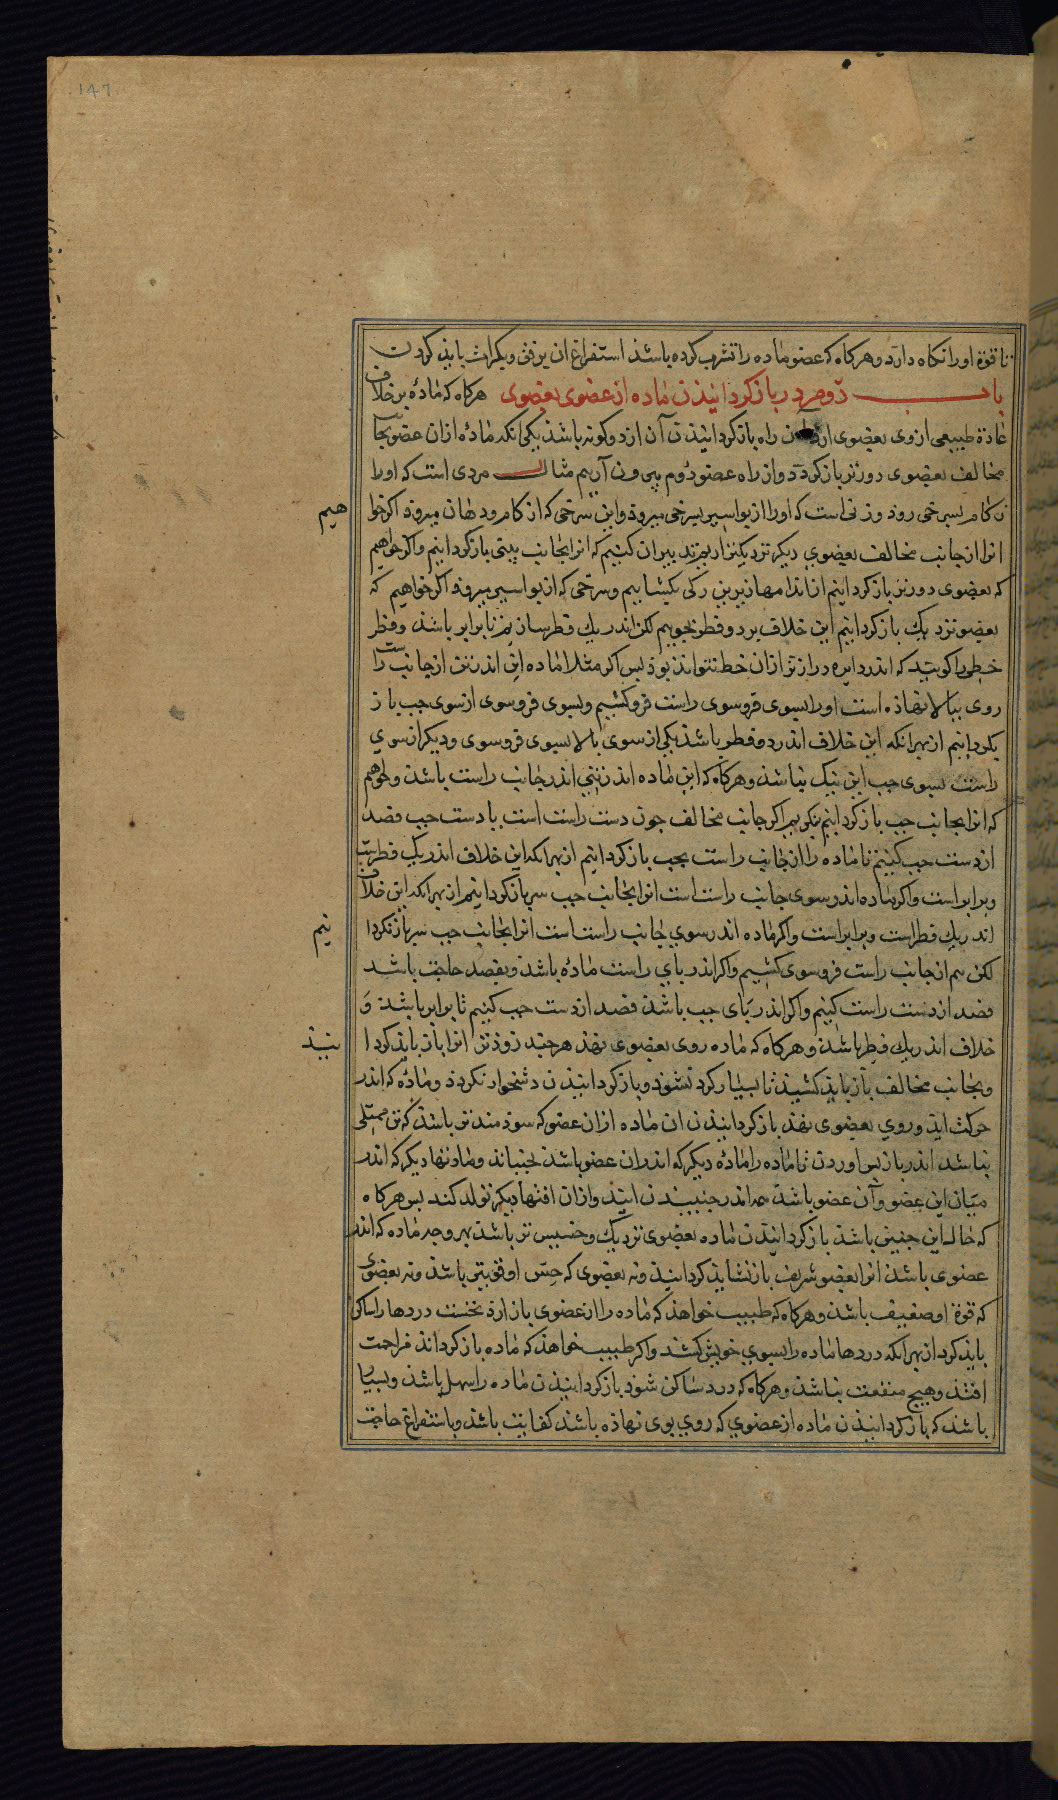 ۱۴۶
تا قوة او را نکاه دارد و هرکاه که عضو ماده را تشرب کرده باشذ استفراغ ان برفق و بکرات بایذ کردن
باب دوم در باز کردانیذن ماده از عضوی بعضوی هرکاه که ماذۀ بر خلاف
عاذة طبیعی ازوی بعضوی راه باز کردانیذن آن از دو کونه باشذ یکی انکه ماذه ازان عضو بجا
مخالف بعضوی دورتر باز کردد و از راه عضو دوم بیرون آریم مثال مردی است که اورا
زکام بسرخی روذ و زنی است که اورا از بواسیر سرخی میروذ و این سرخی که از کام و دهان میروذ اکر خوا
هیم
انرا از جانب مخالف بعضوی دیکر نزدیکتر ازیرتر بیران کنیم که انرا بجانب بینی باز کردانیم و اکر خواهیم
که بعضوی دورتر باز کردانیم از اندامها زیرین رکی بکشاییم و سرخی که از بواسیر میروذ اکر خواهیم که
بعضو نزدیک باز کردانیم این خلاف بر دو قطر نجوییم لکن اندر یک قطر سازیم تا برابر باشذ و قطر
خطی را کویند که اندر دایره دراز تر ازان خط نتواند بوذ بس اکر مثلا ماده این اندر تن از جانب راست
روی ببالا نهاذه است اورا بسوی فروسوی راست فروکشیم و بسوی فروسوی از سوی جب باز
نکردانیم از بهر انکه این خلاف اندر دو قطر باشذ یکی از سوی بالا بسوی فروسوی و دیکر از سوی
راست بسوی جب این نیک نباشذ و هرکاه که این ماده اندر تنی اندر جانب راست باشذ و خواهیم
که انرا بجانب جب باز کردانیم نکریم اکر جانب مخالف جون دست راست است با دست جب فصد
از دست جب کنیم تا ماده را از جانب راست بجب باز کردانیم از بهر انکه این خلاف اندر یک قطرست
و برابر است و اکر ماده اندر سوی جانب راست است انرا بجانب جب سر باز کردانیم از بهر انکه این خلاف
اندر یک قطر است و برابر است و اکر ماده اندر سوی جانب راست است انرا بجانب جب سر باز نکردا
نیم
لکن هم از جانب راست فروسوی کشیم و اکر اندر بای راست ماذۀ باشذ و بفصد حاجت باشد
فصد از دست راست کنیم و اکر اندر بای جب باشذ فصد از دست جب کنیم تا برابر باشذ و
خلاف اندر یک قطر باشذ و هرکاه که ماده روی بعضوی نهذ هرجند زوذتر انرا باز بایذ کردا
نیذ
و بجانب مخالف باز بایذ کشیذ تا بسیار کرد نشوذ و باز کردانیذن دشخوار نکردذ و ماذۀ که اندر
حرکت ایذ و روی بعضوی نهذ باز کردانیذن ان ماده ازان عضو که سوذمندتر باشذ که تن ممتلی
نباشد اندر باز بس اوردن تا ماده را ماذۀ دیکر که اندران عضو باشذ نجنباند و مادتها دیکر که اندر
میان این عضو و آن عضو باشذ همه اندر جنبیذن ایذ و ازان افتها دیکر تولد کند بس هرکاه
که حال این جنین باشذ باز کردانیذن ماده بعضوی نزدیک و خسیس تر باشذ بهر وجه ماده که اندر
عضوی باشذ انرا بعضو شریف باز نشایذ کردانیذ و نه بعضوی که حس او قوی تر باشذ و نه بعضوی
که قوة او ضعیف باشذ و هرکاه که طبیب خواهذ که ماده را از عضوی باز ارد نخست دردها را ساکن
بایذ کرد از بهر انکه دردها ماده را بسوی خویش کشد و اکر طبیب خواهذ که ماده باز کرداند مزاحمت
افتذ و هیچ منفعت نباشذ و هرکاه که درد ساکن شوذ باز کردانیذن ماده را سهل باشذ و بسیا
باشذ که باز کردانیذن ماده از عضوی که روی بوی نهاذه باشذ کفایت باشذ و باستفراغ حاجت